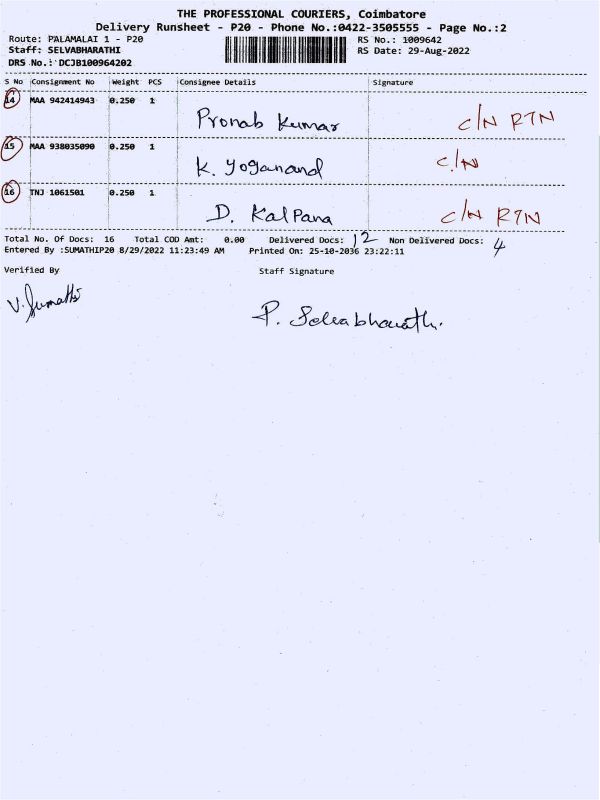 THE PROFESSIONAL COURIERS, Coimbatore
Delivery Runsheet - P20 - Phone No.:0422-3505555 - Page No.:2
Route: PALAMALAI 1 - P20 RS No.: 1009642
Staff: SELVABHARATHI RS Date: 29-Aug-2022
DRS No.: DCJB100964202
S No Consignment No Weight PCS Consignee Details Signature
14 MAA 942414943 0.250 1
Pronab Kumar C/N RTN
15 MAA 938035090 0.250 1
K. Yoganand C/N
16 TNJ 1061501 0.250 1
D. Kalpana C/N RTN
Total No. Of Docs: 16 Total COD Amt: 0.00 Delivered Docs: 12 Non Delivered Docs: 4
Entered By :SUMATHIP20 8/29/2022 11:23:49 AM Printed On: 25-10-2036 23:22:11
Verified By Staff Signature
V. Sumathi P. Selvabharathi.